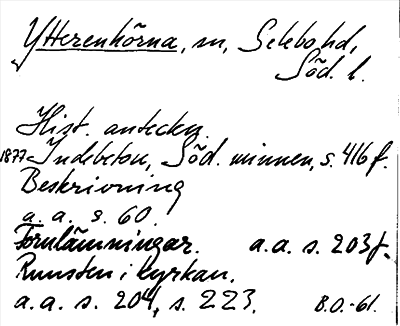 Ytterenhörna, sn, Selebo hd,
Söd. l.
Hist. anteckn.
1877 Indebetou, Söd. minnen, s. 416 f.
Beskrivning
a. a. s. 60.
Fornlämningar. a. a. s. 203 f.
Runsten i kyrkan.
a. a. s. 204, s. 223. B.O.-61.